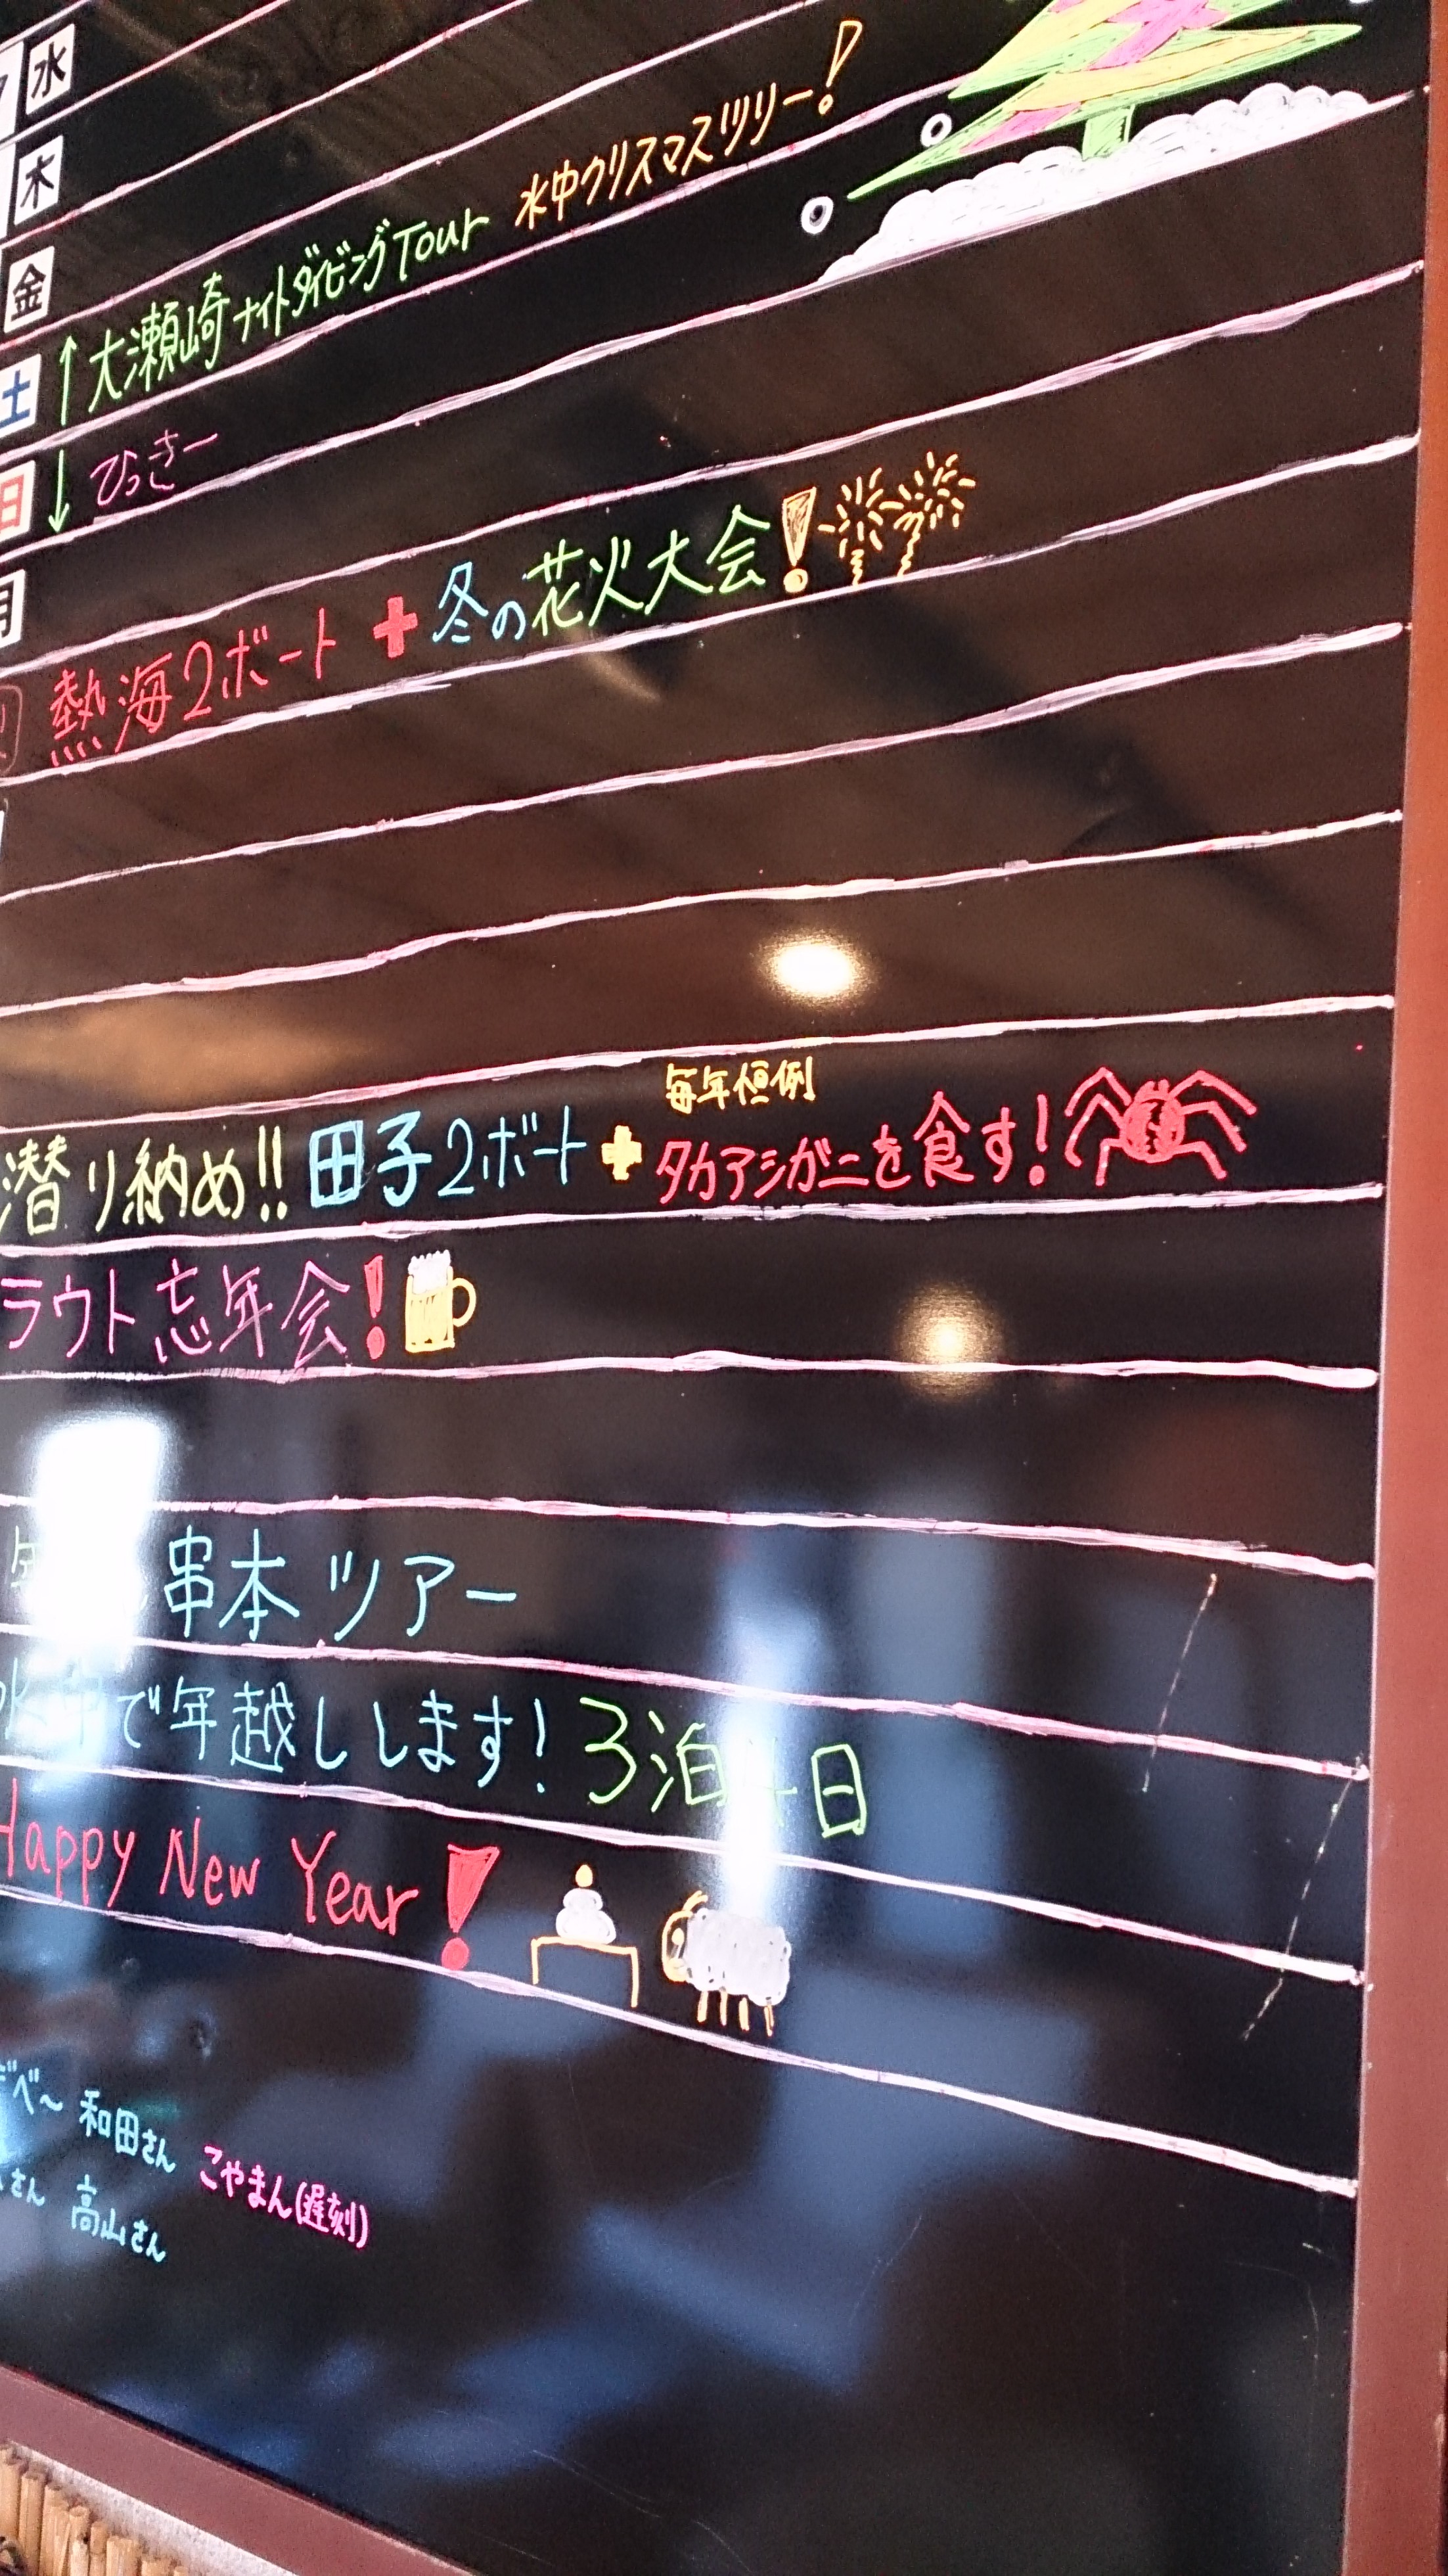 水
木
金
土 ↑ 大瀬崎 ナイトダイビングTour 水中クリスマスツリー!
日 ↓ ひっきー
月
熱海2ボート + 冬の花火大会!
毎年恒例
潜り納め!! 田子2ボート + タカアシガニを食す!
ラウト忘年会!
串本ツアー
水中で年越しします! 3泊4日
Happy New Year!
べ〜 和田さん こやまん(遅刻)
さん 高山さん